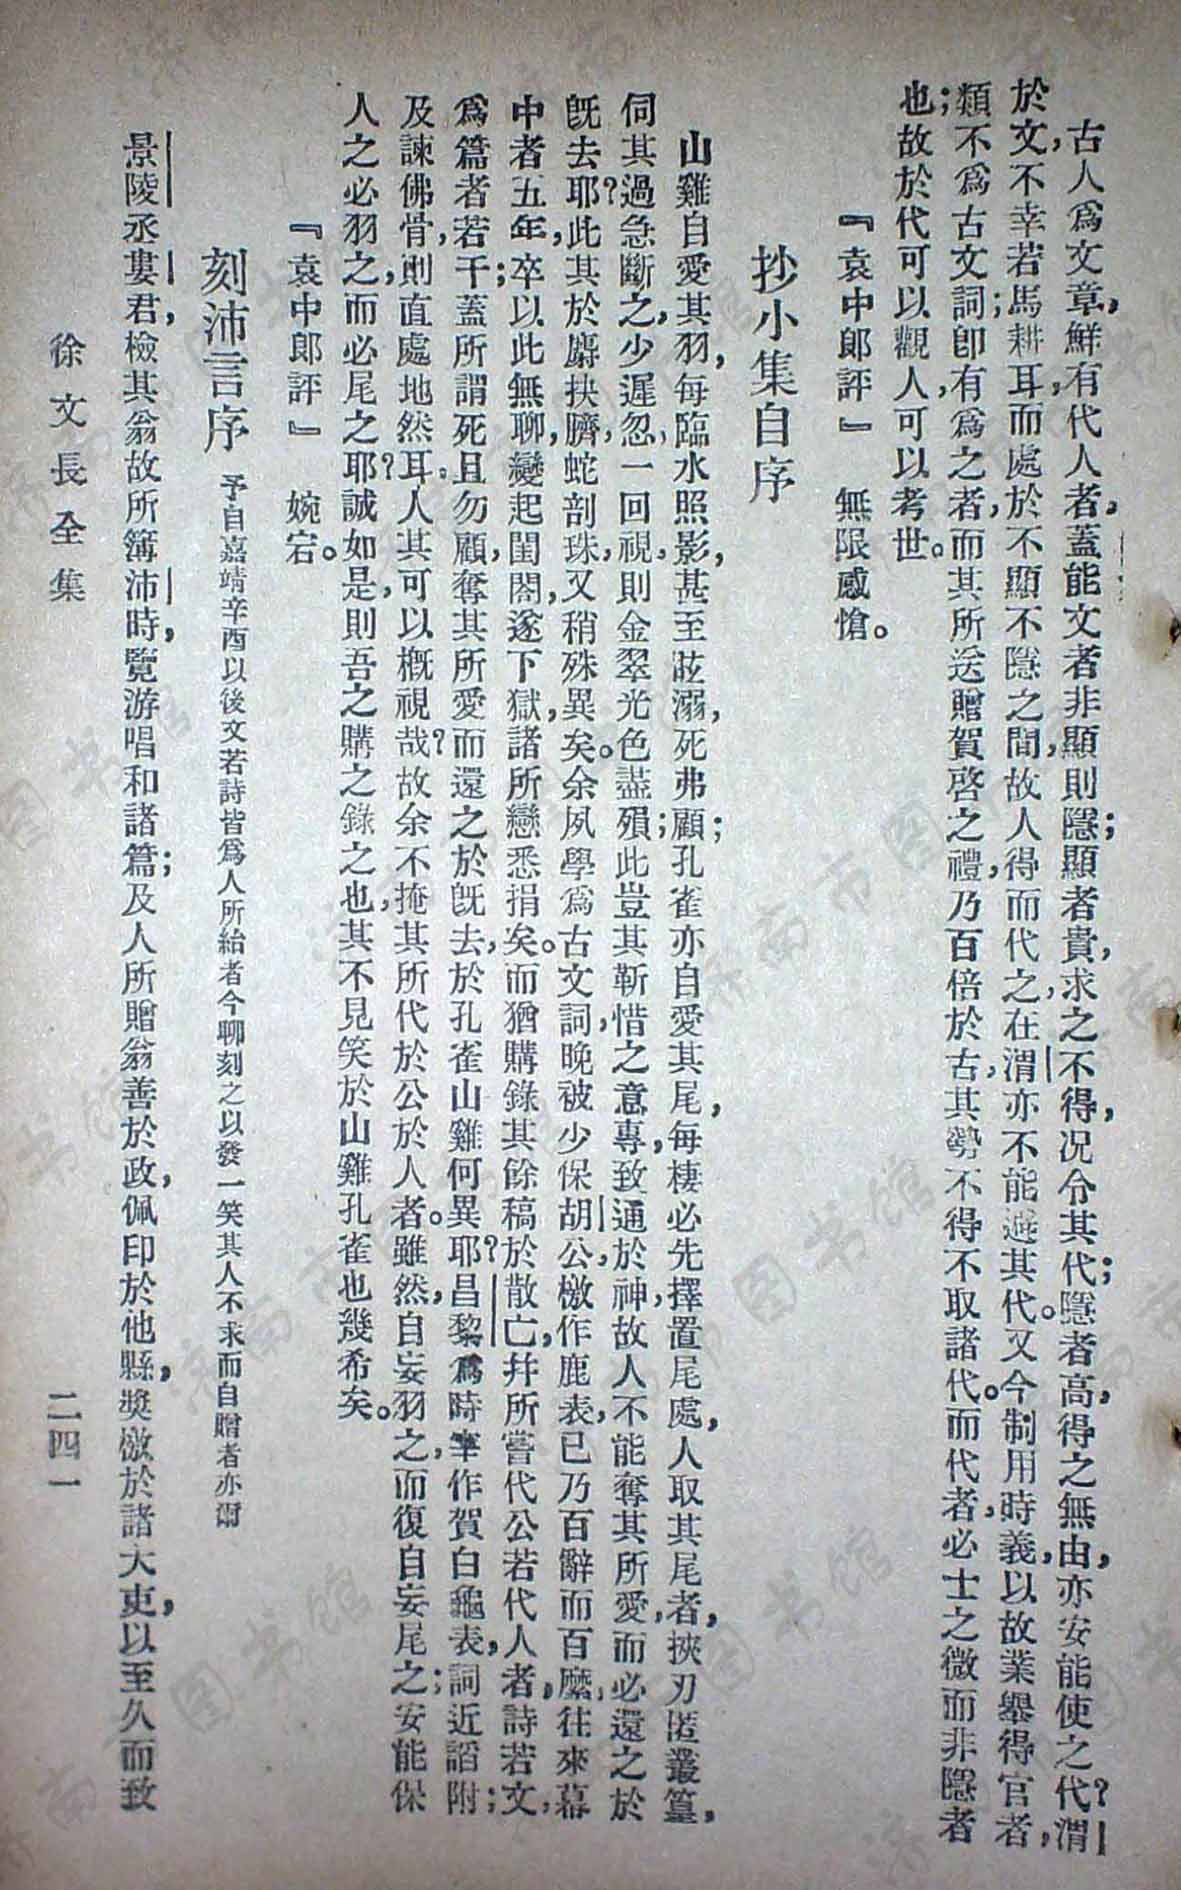 古人爲文章，鮮有代人者，蓋能文者非顯則隱；顯者貴，求之不得，況令其代；隱者高，得之無由，亦安能使之代？渭
於文，不幸若馬耕耳，而處於不顯不隱之間，故人得而代之，在渭亦不能避其代。又今制用時義，以故業舉得官者，
類不爲古文詞；卽有爲之者，而其所送贈賀啓之禮，乃百倍於古，其勢不得不取諸代。而代者必士之微而非隱者
也；故於代可以觀人，可以考世。
『袁中郞評』　無限感愴。
抄小集自序
山雞自愛其羽，每臨水照影，甚至眩溺，死弗顧；孔雀亦自愛其尾，每棲必先擇置尾處，人取其尾者，挾刃匿叢篁，
伺其過急斷之，少遲忽一回視，則金翠光色盡殞；此豈其靳惜之意專，致通於神，故人不能奪其所愛，而必還之於
旣去耶？此其於麝抉臍，蛇剖珠，又稍殊異矣。余夙學爲古文詞，晚被少保胡公檄作鹿表，已乃百辭而百縻，往來幕
中者五年，卒以此無聊，變起閨閤，遂下獄，諸所戀悉捐矣。而猶購錄其餘稿於散亡，幷所嘗代公若代人者，詩若文，
爲篇者若干；蓋所謂死且勿顧，奪其所愛而還之於旣去，於孔雀山雞何異耶？昌黎爲時宰作賀白龜表，詞近諂附；
及諫佛骨，則直處地然耳。人其可以槪視哉？故余不掩其所代於公於人者。雖然，自妄羽之，而復自妄尾之；安能保
人之必羽之，而必尾之耶？誠如是，則吾之購之錄之也，其不見笑於山雞孔雀也幾希矣。
『袁中郞評』　婉宕。
刻沛言序　予自嘉靖辛酉以後文若詩皆爲人所紿者今聊刻之以發一笑其人不求而自贈者亦爾
景陵丞婁君，檢其翁故所簿沛時，覽游唱和諸篇；及人所贈翁善於政，佩印於他縣，獎檄於諸大吏，以至久而致
徐文長全集　二四一